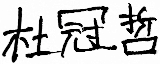 杜冠哲